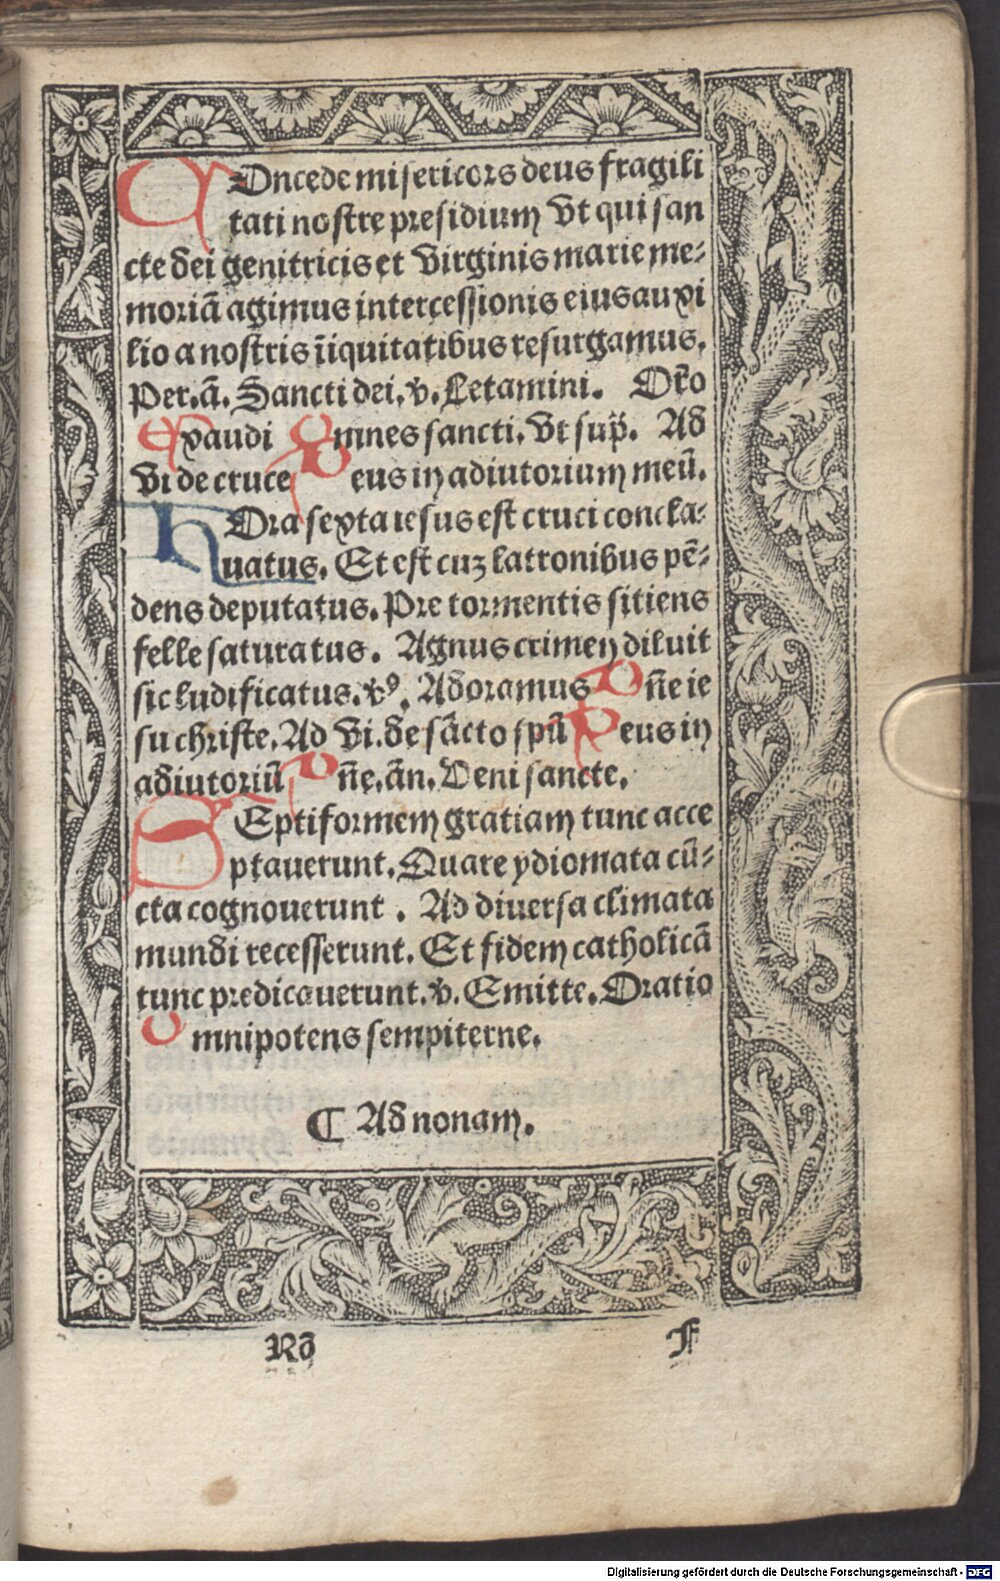 COncede misericors deus fragili
tati nostre presidium Vt qui san
cte dei genitricis et Virginis marie me-
moriā agimus intercessionis eius auxi
lio a nostris īiquitatibus resurgamus.
Per.ā. Sancti dei. v. Letamini. Or̄o
Exaudi Omnes sancti. Vt sup̄. Ad
Vi de cruce Deus in adiutorium meū.
HOra sexta iesus est cruci concla-
uatus. Et est cuz latronibus pē-
dens deputatus. Pre tormentis sitiens
felle saturatus. Agnus crimen diluit
sic ludificatus. vꝰ. Adoramus Dn̄e ie
su christe. Ad Vi. de sācto spū Deus in
adiutoriū Dn̄e. ān. Veni sancte.
SEptiformem gratiam tunc acce
ptauerunt. Quare ydiomata cū-
cta cognouerunt. Ad diuersa climata
mundi recesserunt. Et fidem catholicā
tunc predicauerunt. v. Emitte. Oratio
Omnipotens sempiterne.
¶ Ad nonam.
Ro F
Digitalisierung gefördert durch die Deutsche Forschungsgemeinschaft - DFG